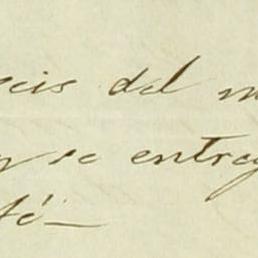 seis del m
y se entreg
fé —